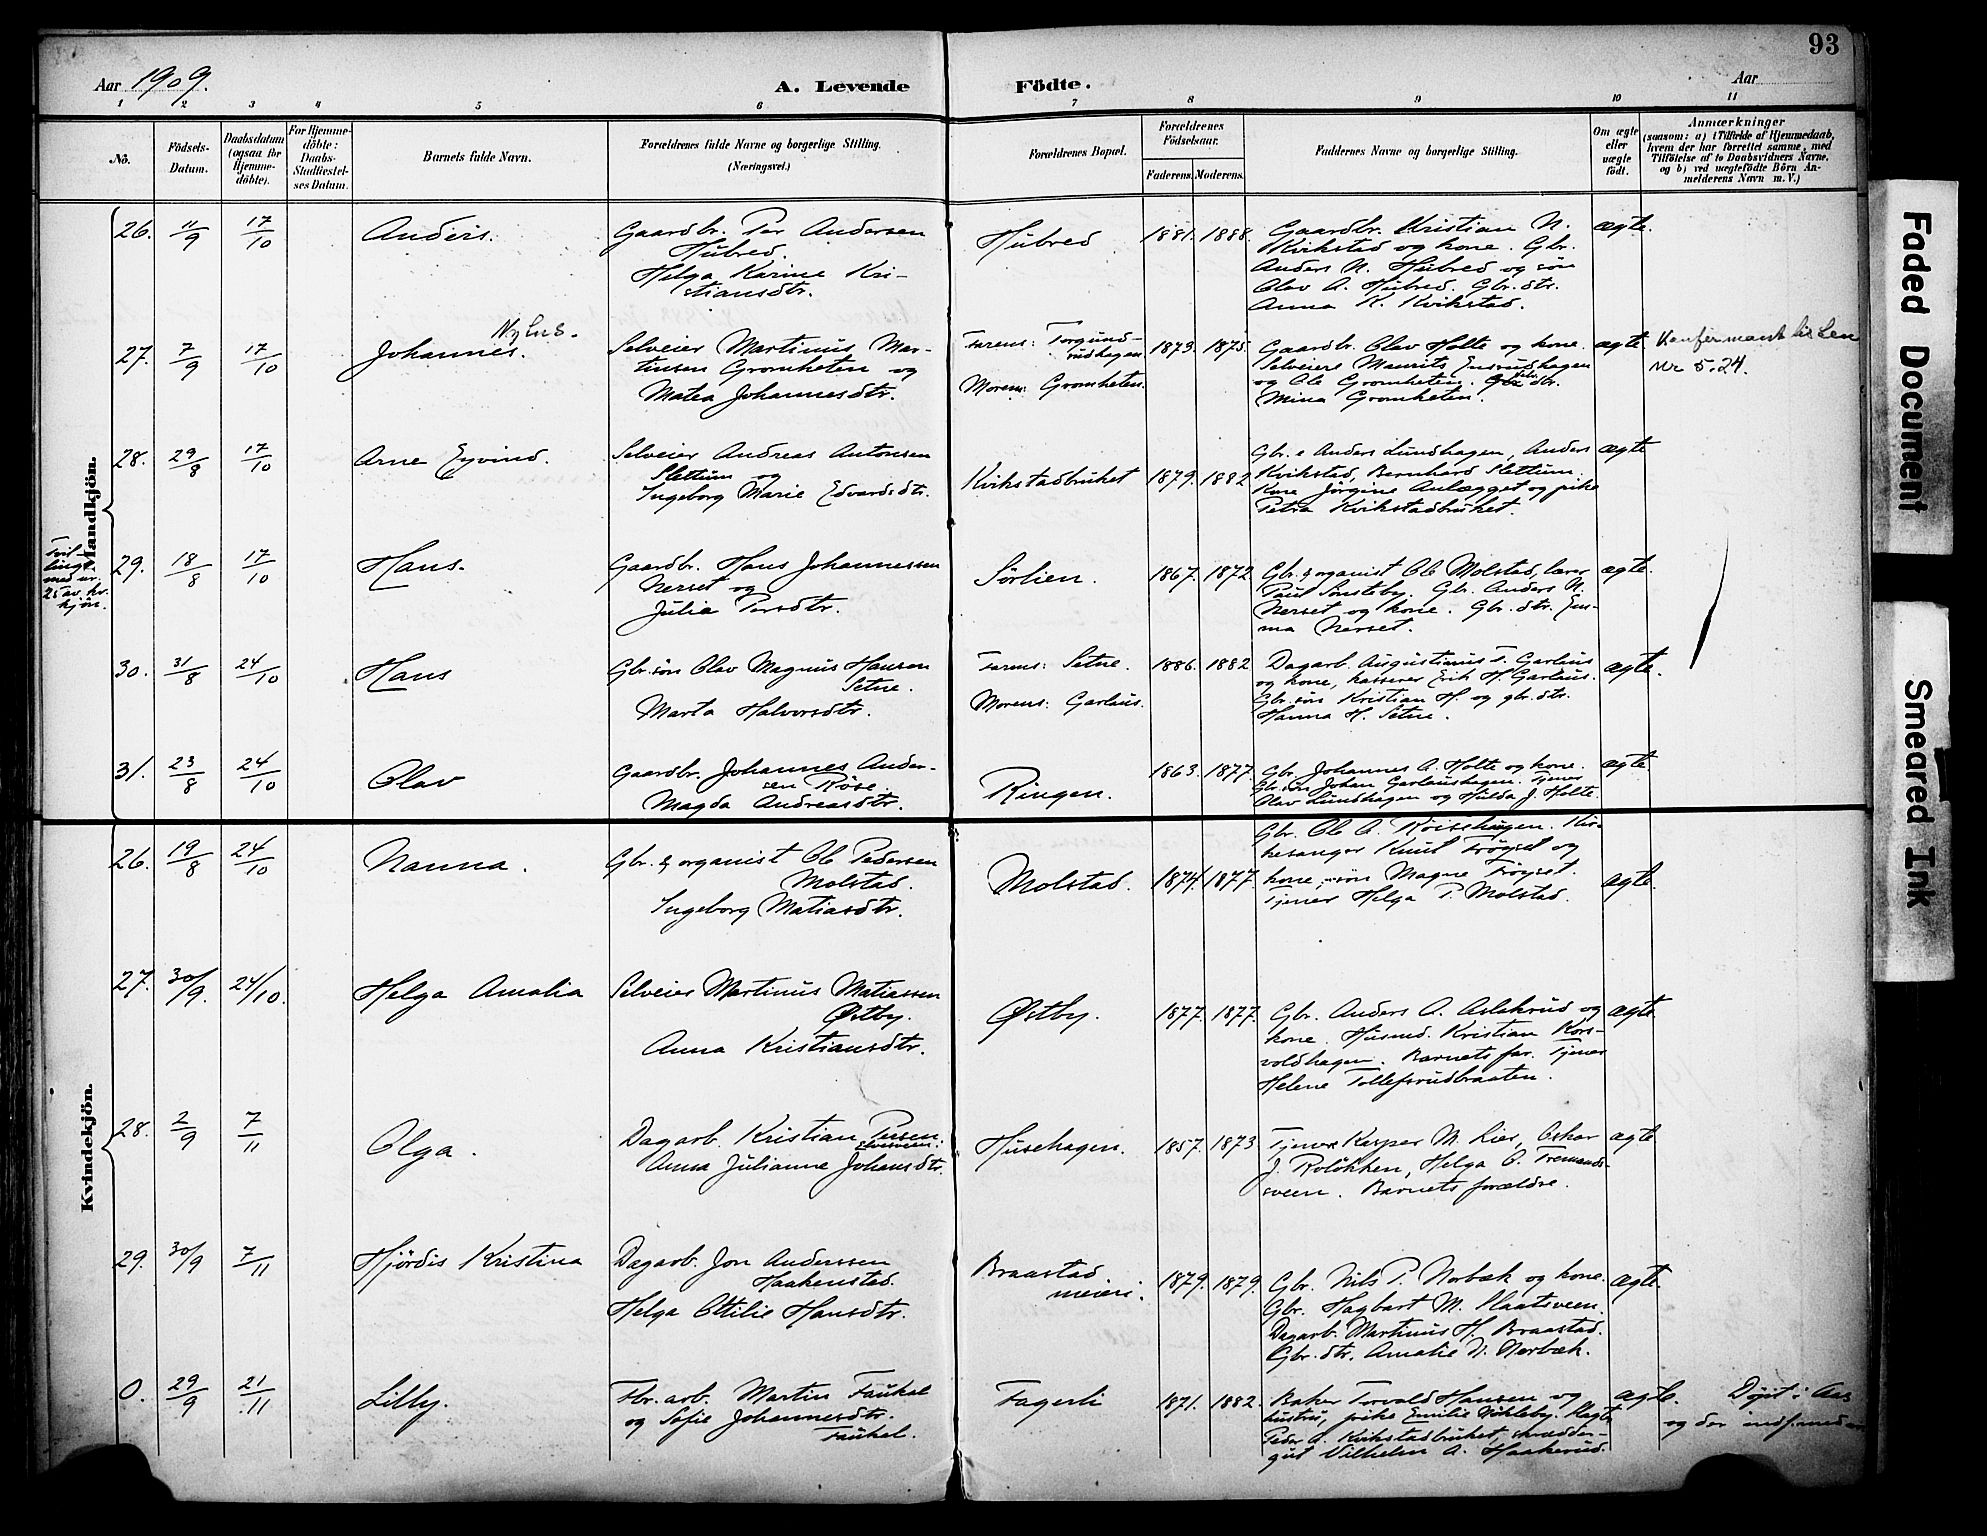 93
Aar 1909.
A. Levende Födte.
Aar
1 2 3 4 5 6 7 8 9 10 11
No.
Födsels-
Datum.
Daabsdatum
(ogsaa for
Hjemme-
döbte).
For Hjemme-
döbte:
Daabs-
Stadfæstel-
ses Datum.
Barnets fulde Navn.
Forældrenes fulde Navne og borgerlige Stilling.
(Næringsvei.)
Forældrenes Bopæl.
Forældrenes
Födselsaar.
Faderens. Moderens.
Faddernes Navne og borgerlige Stilling.
Om ægte
eller
uægte
födt.
Anmærkninger
(saasom: a) i Tilfælde af Hjemmedaab,
hvem der har forrettet samme, med
Tilföielse af to Daabsvidners Navne,
og b) ved uægtefödte Börn An-
melderens Navn m. V.)
Mandkjön.
26. 11/9 17/10 Anders.
Gaardbr. Per Andersen
Hübred.
Helga Karine Kri-
stiansdtr.
Hübred 1881. 1888.
Gaardbr. Kristian N.
Kvikstad og kone. Gbr.
Anders N. Hübred og søn
Olav A. Hübred. Gbr. dtr.
Anna K. Kvikstad.
ægte.
27. 7/9 17/10 Johannes. Nyhus.
Selveier Martinus Mar-
tinsen Gromheten og
Matea Johannesdtr.
Farens: Torgund-
rudhagen
Morens: Gromheten.
1873. 1875.
Gaardbr. Olav Holte og kone.
Selveiere Maurits Ensrudhagen
og Ole Gromheten. Selv. dtr.
Mina Gromheten.
ægte
Nr 5.24.
28. 29/8 17/10 Arne Eyvind.
Selveier Andreas Antonsen
Slettum og
Ingeborg Marie Edvardsdtr.
Kvikstadbruket 1879. 1882
Gbr. e Anders Lundhagen, Anders
Kvikstad, Bernhard Slettum.
Kone Jörgine Anlægget og pike
Petra Kvikstadbruket.
ægte
Tvil-
linge
med nr.
25 av kv.
kjön.
29. 18/8 17/10 Hans.
Gaardbr. Hans Johannessen
Nerset og
Julia Persdtr.
Sörlien. 1867. 1872
Gbr. & organist Ole Molstad, lærer
Paul Sønsteby. Gbr. Anders N.
Nerset og kone. Gbr. dtr. Em-
ma Nerset.
ægte.
30. 31/8 24/10 Hans
Gbr. søn Olav Magnus Hansen
Setne.
Marta Halvorsdtr.
Farens: Setne.
Morens: Garlaus.
1886. 1882
Dagarb. Augustinus T. Garlaus
og kone, kasserer Erik H. Garlaus.
Gbr. søn Kristian H. og gbr. dtr.
Hanna H. Setne.
ægte.
31. 23/8 24/10 Olav
Gaardbr. Johannes Ander-
sen Röse.
Magda Andreasdtr.
Ringen. 1863. 1877.
Gbr. Johannes A. Holte og kone.
Gbr. søn Johan Garlaushagen. Tjener
Olav Lundhagen og Hulda J. Holte.
ægte
Kvindekjön.
26. 19/8 24/10 Nanna.
Gbr. & organist Ole Pedersen
Molstad.
Ingeborg Matiasdtr.
Molstad. 1874. 1877
Gbr. Ole A. Kir-
kesanger Knut Frøyset og
kone, søn Magne Frøyset.
Tjener Helga P. Molstad.
ægte.
27. 30/9. 24/10. Helga Amalia
Selveier Martinus Matiassen
Østby.
Anna Kristiansdtr.
Østby. 1877. 1877.
Gbr. Anders A. Aslakrud og
kone. Husmd. Kristian Kors-
voldhagen. Barnets far. Tjener
Helene Tollefsrudbraaten.
ægte.
28. 2/9 7/11 Olga.
Dagarb. Kristian Persen
Anna Julianne Johansdtr.
Husehagen. 1857. 1873
Tjener Kasper M. Lier, Oskar
J. Roløkken, Helga O. Tremands-
sveen. Barnets forældre.
ægte
29. 30/9 7/11 Hjördis Kristina
Dagarb. Jon Anderssen
Haakenstad.
Helga Otilie Hansdtr.
Braastad
meieri. 1879. 1879.
Gbr. Nils P. Norbæk og kone.
Gbr. Hagbart M. Slaatsveen.
Dagarb. Martinus H. Braastad.
Gbr. dtr. Amalie N. Norbæk.
ægte.
0. 29/9 21/11 Lilly.
Fbr. arb. Martin Faukal
og Sofie Johannesdtr.
Faukal.
Fagerli 1871. 1882.
Baker Torvald Hansen og
hustru, pike Emilie Nökleby. Slagter
Peder A. Kvikstadbruket, skrædder-
gut Vilhelm A. Haakerud.
ægte.
Døpt i Aas
og der indført
Faded Document
Smeared Ink